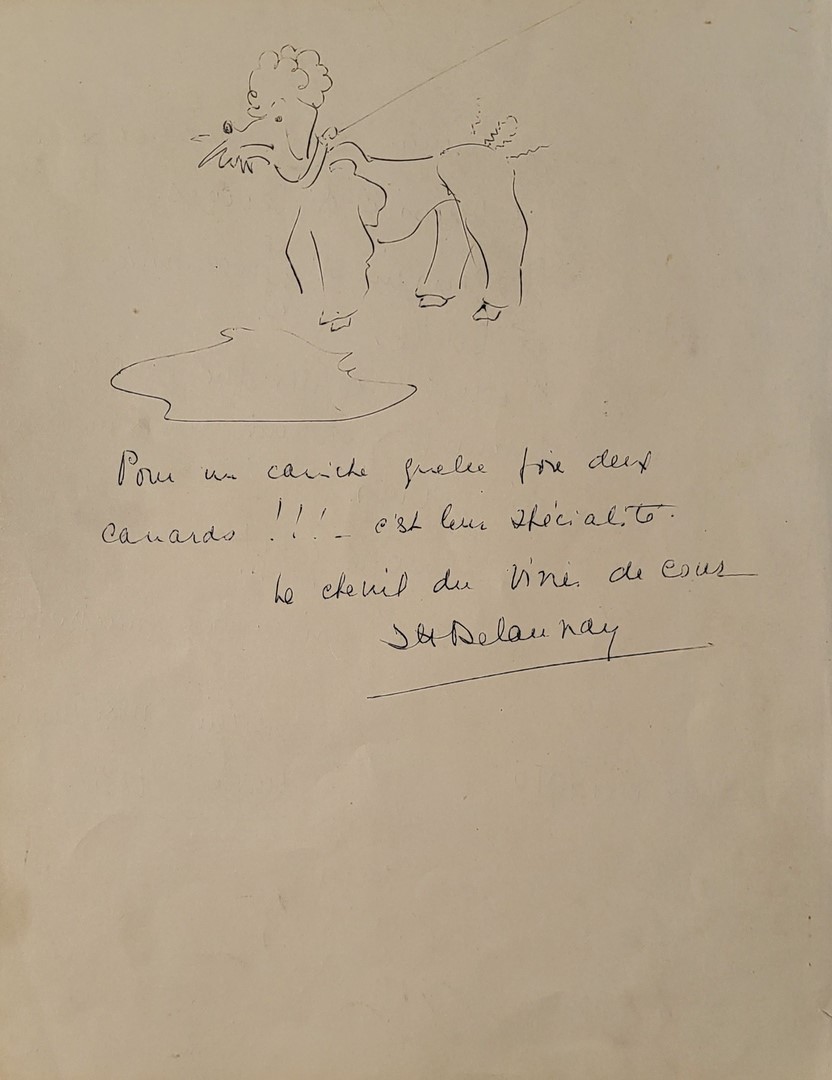 Pour un caniche quelle joie deux
canards !!! _ c'est leur spécialité.
Le chenil du de Cour
JH Delaunay